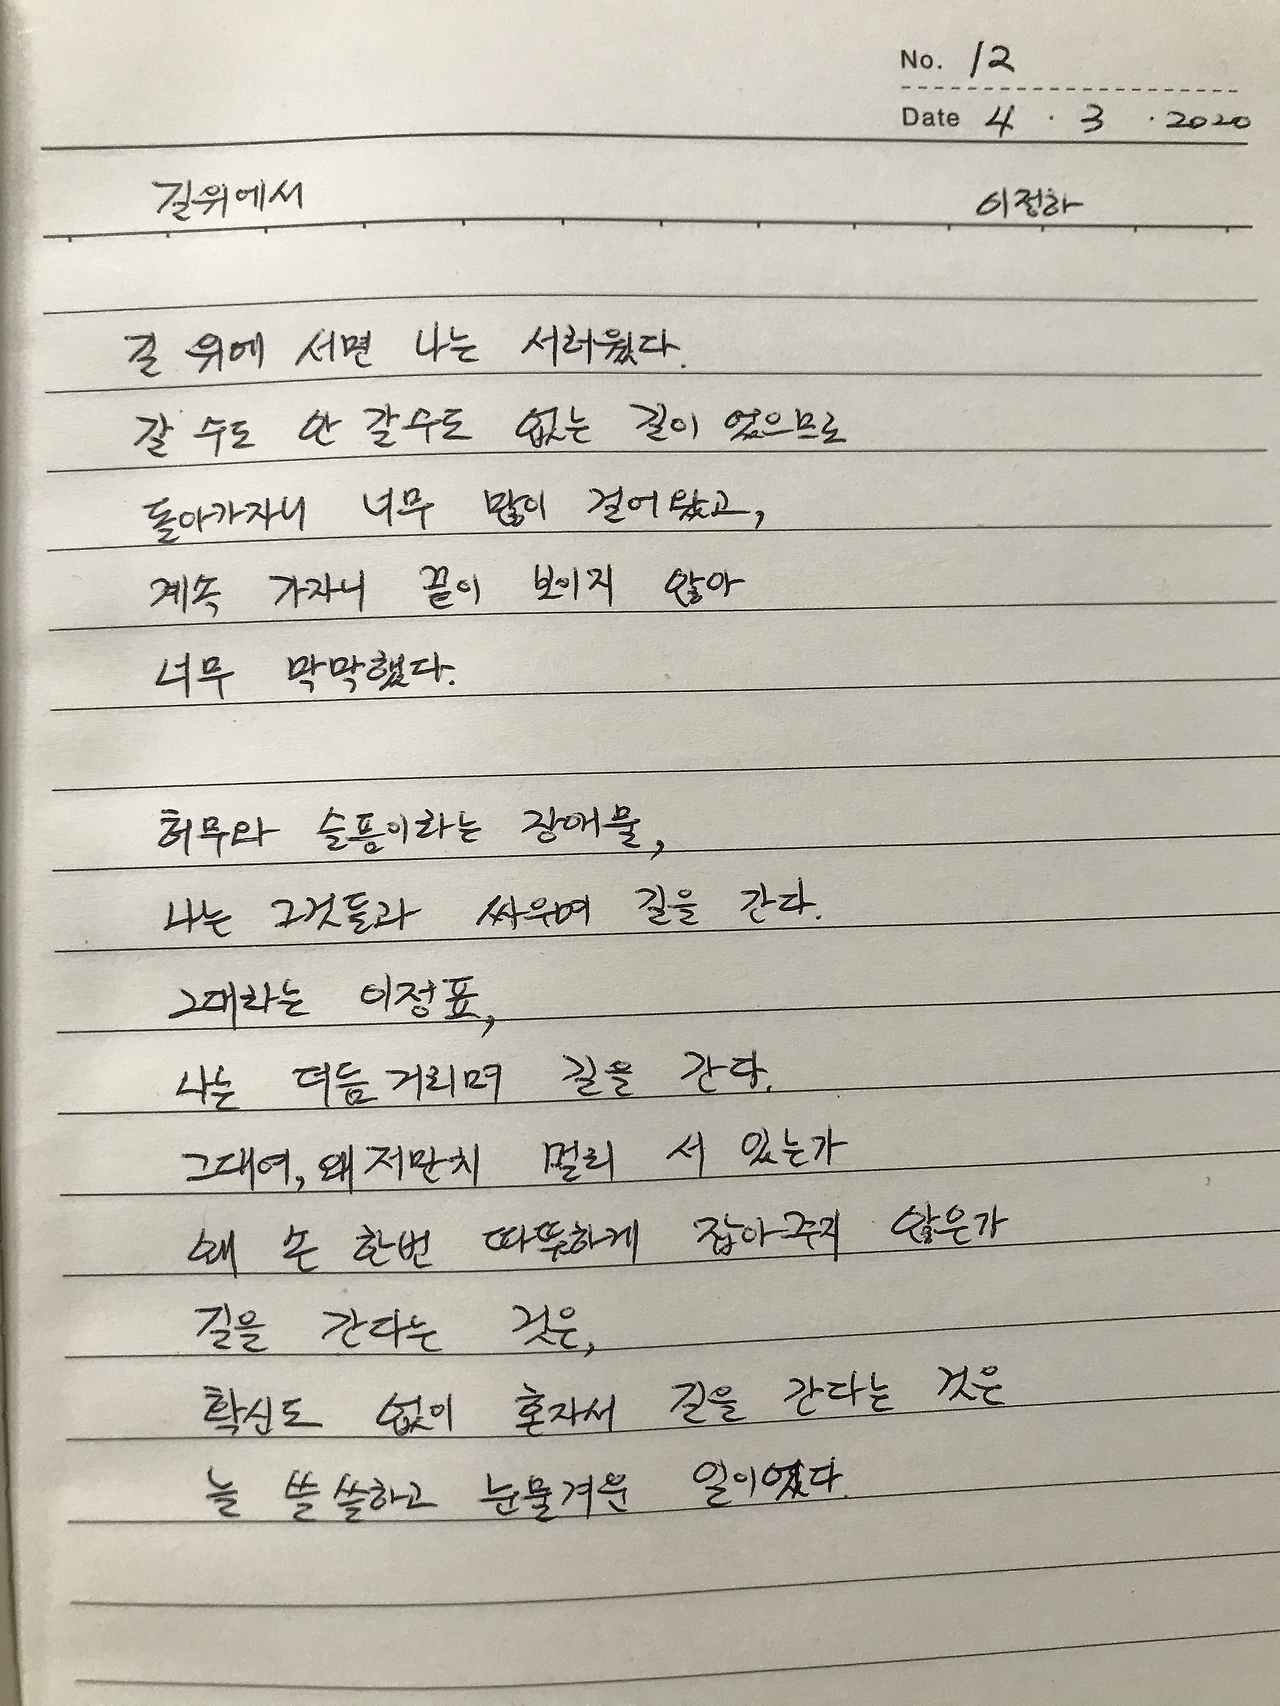 No. 12
Date 4 · 3 · 2020
길위에서 이정하
길 위에 서면 나는 서러웠다.
갈 수도 안 갈수도 없는 길이 었으므로
돌아가자니 너무 많이 걸어왔고,
계속 가자니 끝이 보이지 않아
너무 막막했다.
허무와 슬픔이라는 장애물,
나는 그것들과 싸우며 길을 간다.
그대라는 이정표,
나는 더듬거리며 길을 간다.
그대여, 왜 저만치 멀리 서 있는가
왜 손 한번 따뜻하게 잡아주지 않은가
길을 간다는 것은,
확신도 없이 혼자서 길을 간다는 것은
늘 쓸쓸하고 눈물겨운 일이었다.